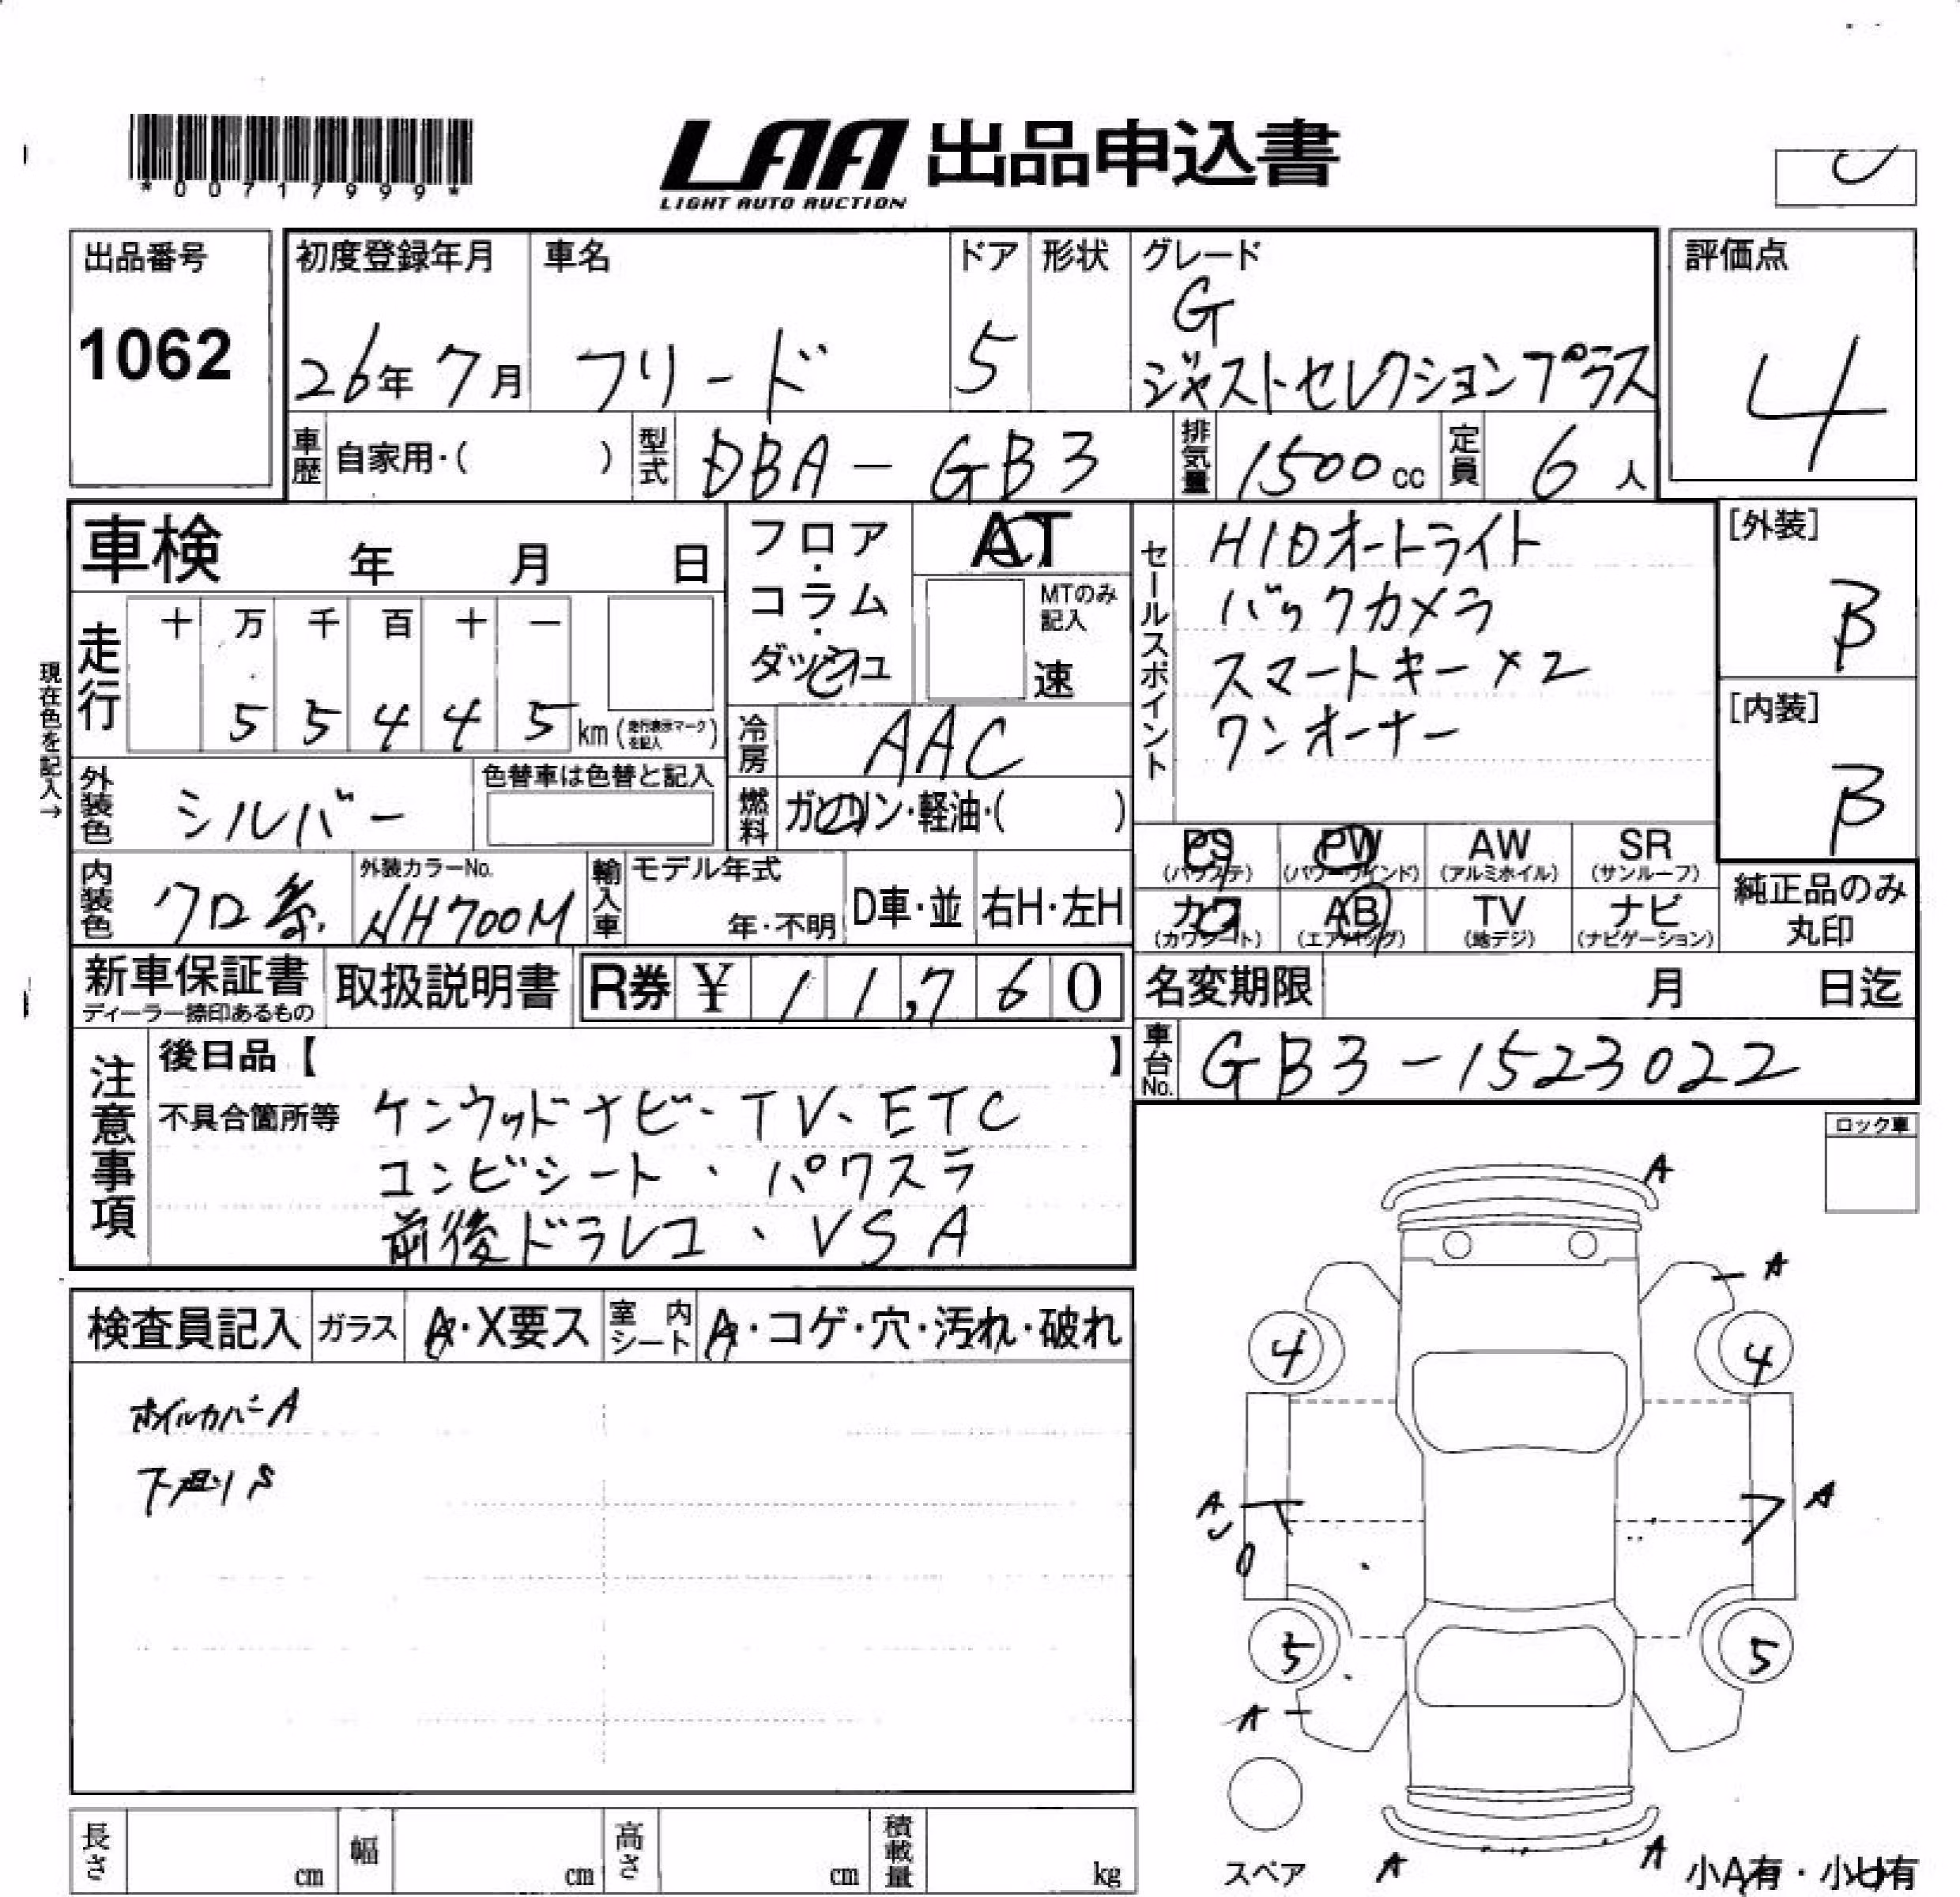 *00717999*
LAA 出品申込書
LIGHT AUTO AUCTION
出品番号
1062
初度登録年月
26年 7月
車名
フリード
ドア
5
形状
グレード
G
ジャストセレクションプラス
評価点
4
車歴
自家用・( )
型式
DBA-GB3
排気量
1500cc
定員
6人
車検 年 月 日
フロア・コラム・ダッシュ
AT
MTのみ記入
速
セールスポイント
HIDオートライト
バックカメラ
スマートキー×2
ワンオーナー
[外装]
B
[内装]
B
現在色を記入→
走行
十 万 千 百 十 一
5 5 4 4 5 km(走行表示マークを記入)
冷房
AAC
外装色
シルバー
色替車は色替と記入
燃料
ガソリン・軽油・( )
PS
(パワステ)
PW
(パワーウインド)
AW
(アルミホイル)
SR
(サンルーフ)
カワ
(カワシート)
AB
(エアバッグ)
TV
(地デジ)
ナビ
(ナビゲーション)
純正品のみ丸印
内装色
クロ系
外装カラーNo.
NH700M
輸入車
モデル年式
年・不明
D車・並
右H・左H
新車保証書
ディーラー捺印あるもの
取扱説明書
R券 ¥ 11,760
名変期限 月 日迄
車台No.
GB3-1523022
注意事項
後日品【 】
不具合箇所等
ケンウッドナビ、TV、ETC
コンビシート、パワスラ
前後ドラレコ、VSA
ロック車
検査員記入
ガラス
A・X要ス
室内シート
A・コゲ・穴・汚れ・破れ
ホイルカバーA
下廻りS
A
A
4 4
A
A
5 5
A
スペア
A A
小A有・小U有
長さ cm
幅 cm
高さ cm
積載量 kg